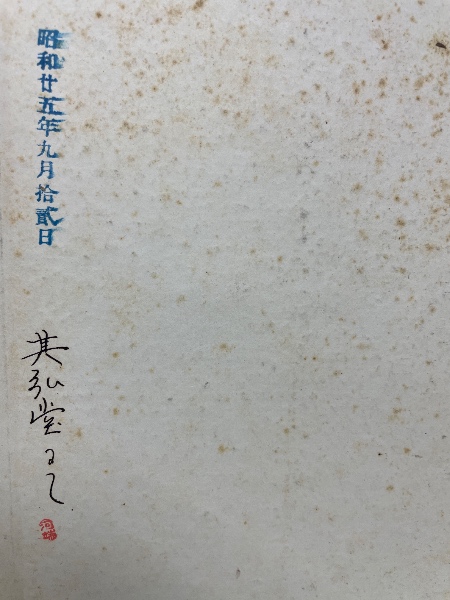 昭和廿五年九月拾貳日
其弘堂にて